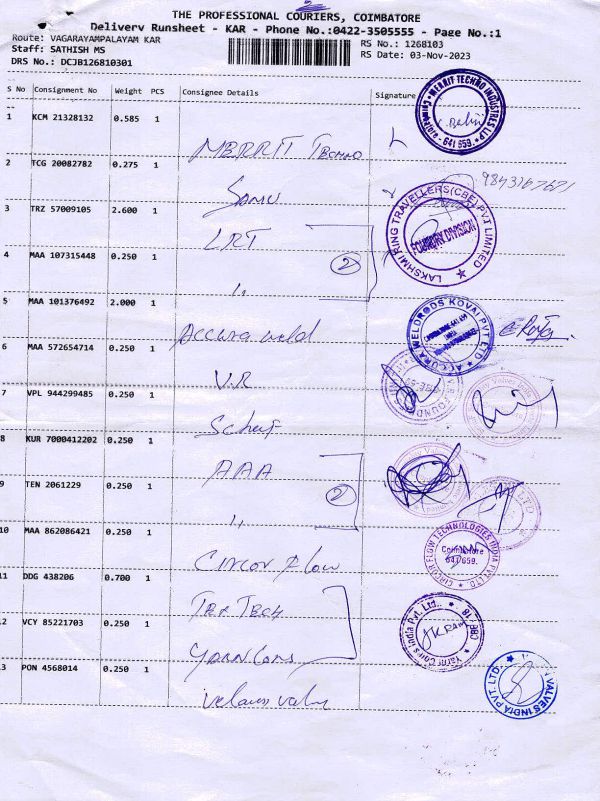 THE PROFESSIONAL COURIERS, COIMBATORE
Delivery Runsheet - KAR - Phone No.:0422-3505555 - Page No.:1
Route: VAGARAYAMPALAYAM KAR
RS No.: 1268103
Staff: SATHISH MS
RS Date: 03-Nov-2023
DRS No.: DCJB126810301
S No Consignment No Weight PCS Consignee Details Signature
1 KCM 21328132 0.585 1 MERRIT Techno
MERRIT TECHNO INDUSTRIES LLP
641 659
2 TCG 20082782 0.275 1 Somu
9843167671
3 TRZ 57009105 2.600 1 LRT
LAKSHMI RING TRAVELLERS (CBE) PVT LIMITED
FOUNDRY DIVISION
4 MAA 107315448 0.250 1 ,,
2
5 MAA 101376492 2.000 1 Accura weld
ACCURA WELDRODS KOVAI PVT LTD
6 MAA 572654714 0.250 1 V.R
7 VPL 944299485 0.250 1
8 KUR 7000412202 0.250 1 AAA
9 TEN 2061229 0.250 1 ,,
2
10 MAA 862086421 0.250 1 Circor flow
CIRCOR FLOW TECHNOLOGIES INDIA PVT LTD
Coimbatore
641 659.
11 DDG 438206 0.700 1 Tex Tech
12 VCY 85221703 0.250 1 Yarn Cons
Yarn Cones India Pvt. Ltd.,
13 PON 4568014 0.250 1
VALVES INDIA PVT. LTD.